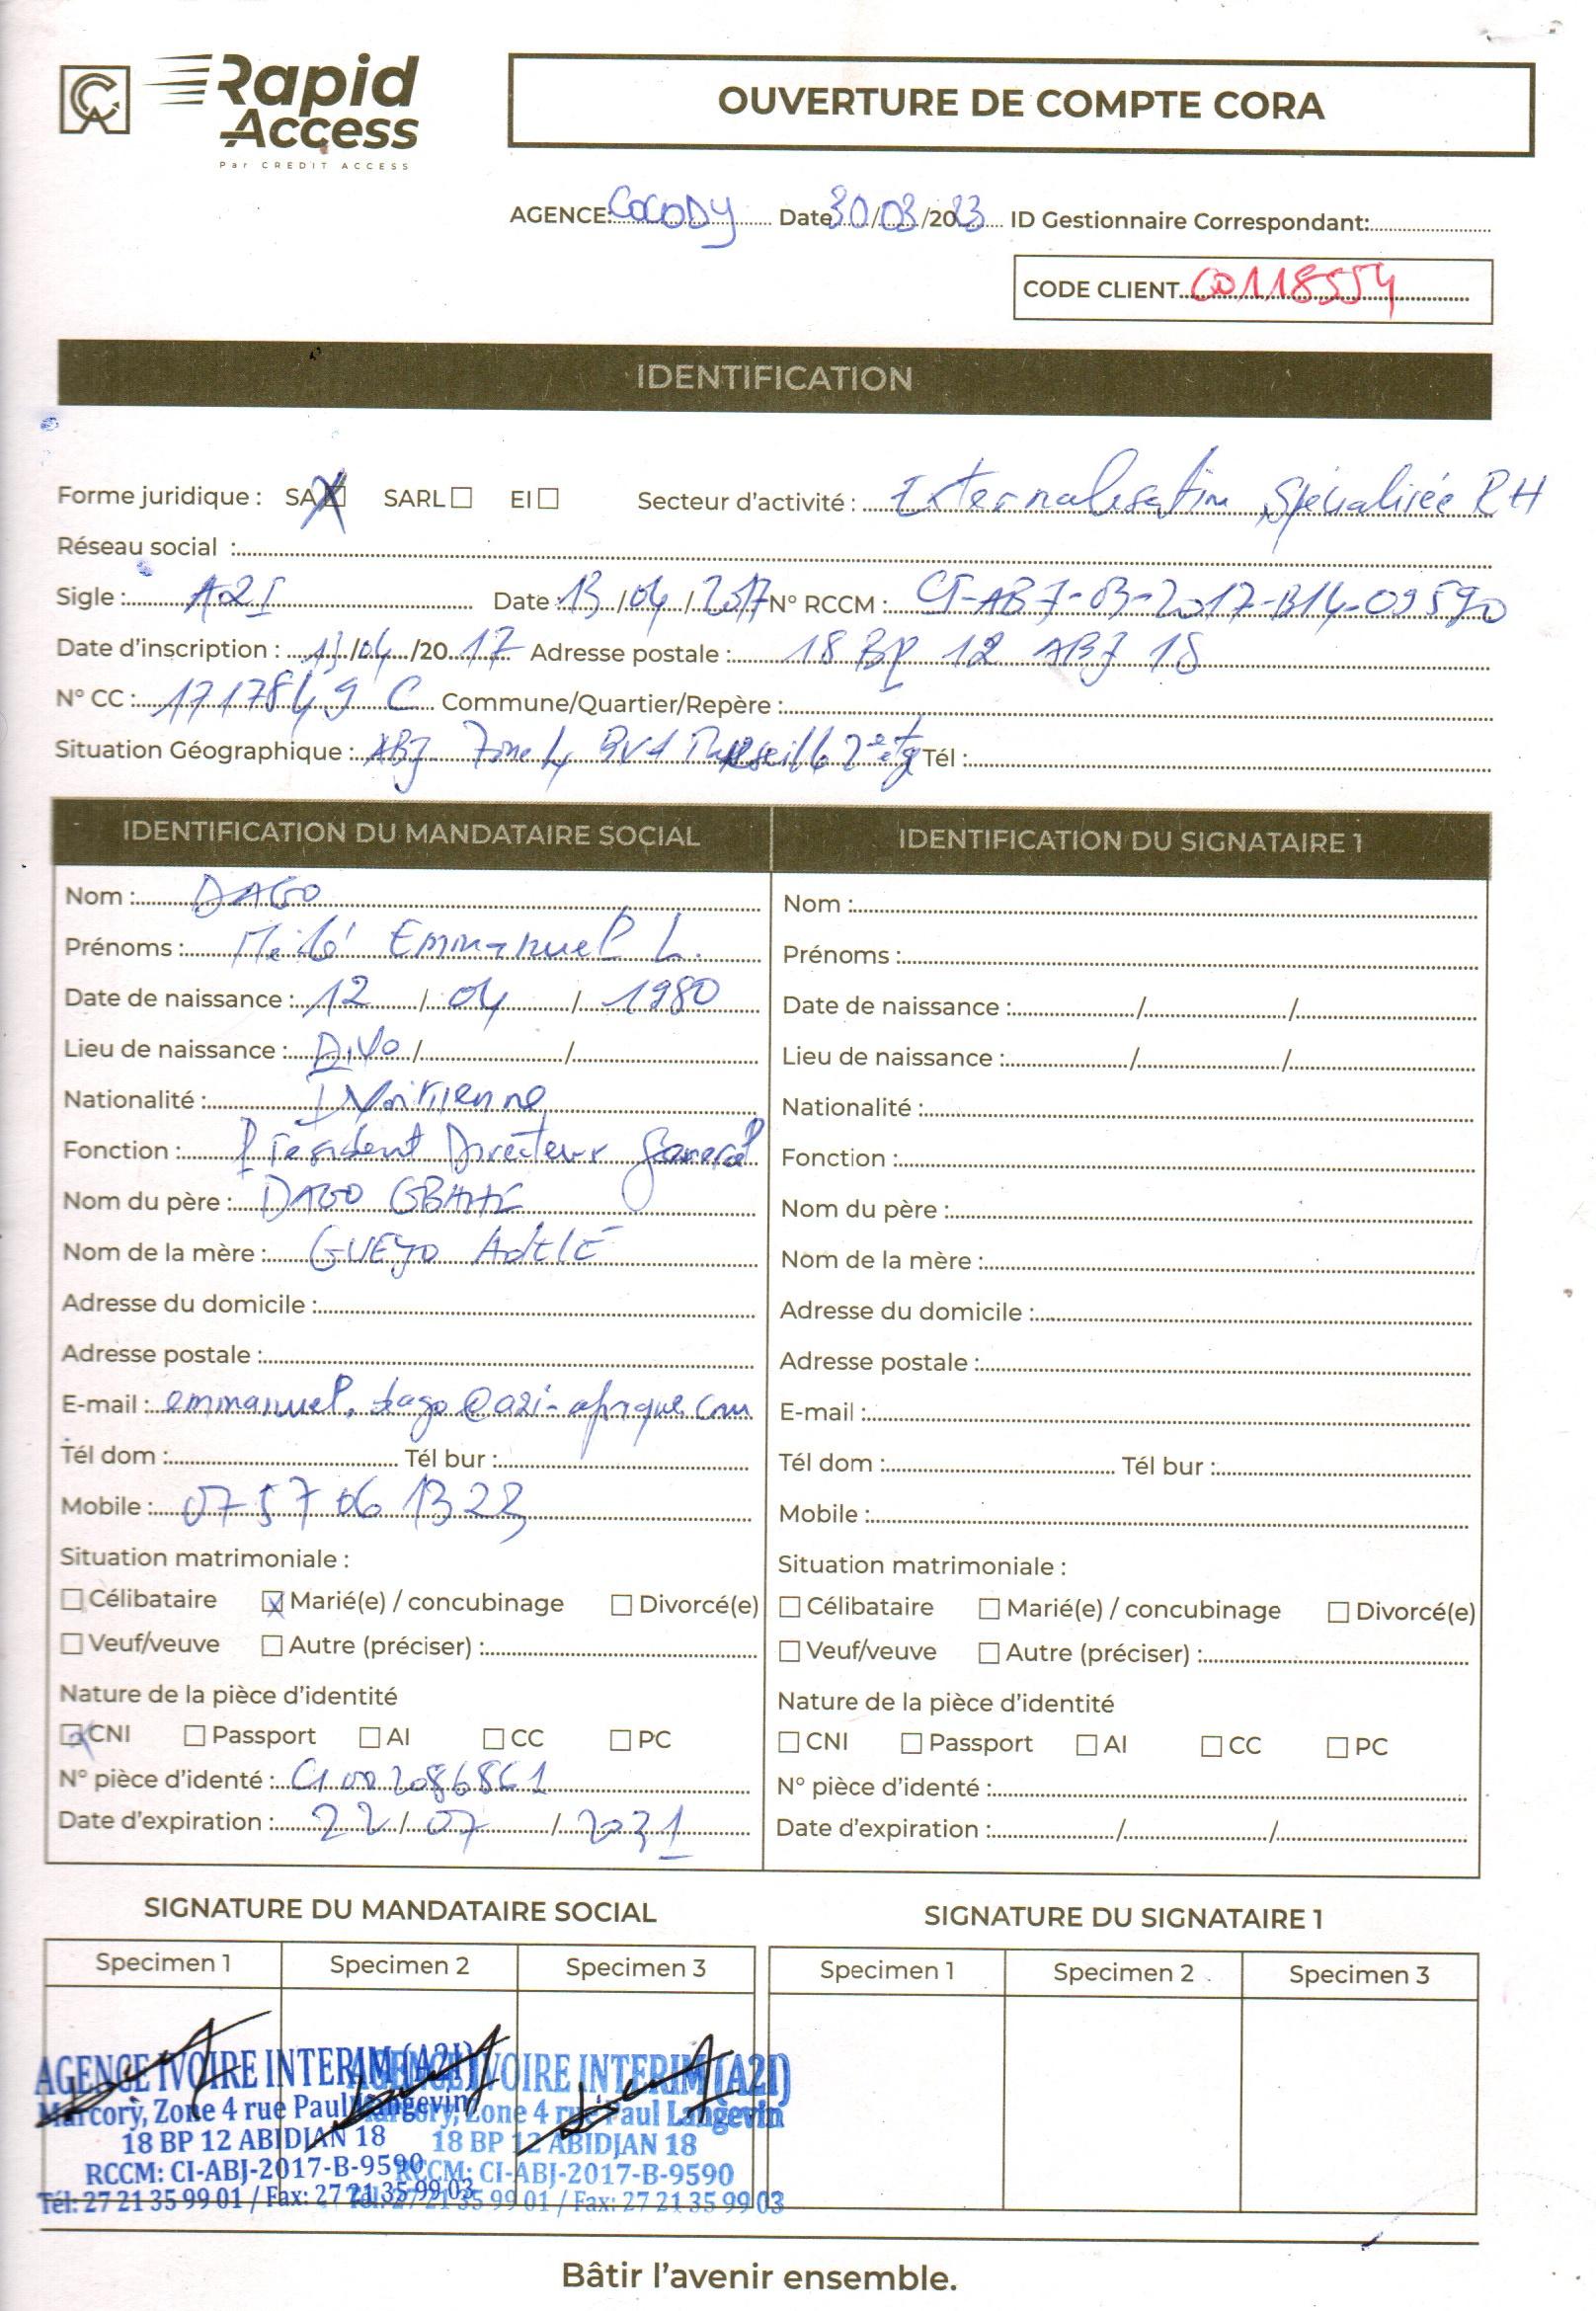 CCA Rapid
Access
Par CREDIT ACCESS
OUVERTURE DE COMPTE CORA
AGENCE: COCODY Date 30/03/2023 ID Gestionnaire Correspondant:
CODE CLIENT CO118554
IDENTIFICATION
Forme juridique : SA ☒ SARL ☐ EI ☐ Secteur d'activité : Externalisation Spécialisée RH
Réseau social :
Sigle : A2I Date : 13/04/2017 N° RCCM : CI-ABJ-03-2017-B14-09590
Date d'inscription : 13/04/2017 Adresse postale : 18 BP 12 ABJ 18
N° CC : 1717849 C Commune/Quartier/Repère :
Situation Géographique : ABJ Zone 4 BVd Marseille 2e etg Tél :
IDENTIFICATION DU MANDATAIRE SOCIAL
Nom : DAGO
Prénoms : Emmanuel L.
Date de naissance : 12 / 04 / 1980
Lieu de naissance : Divo / /
Nationalité : Ivoirienne
Fonction : Président Directeur General
Nom du père : DAGO
Nom de la mère : GUEYO AdELE
Adresse du domicile :
Adresse postale :
E-mail : emmanuel.dago@a2i-afrique.com
Tél dom : Tél bur :
Mobile : 07 57 06 13 23
Situation matrimoniale :
☐ Célibataire ☒ Marié(e) / concubinage ☐ Divorcé(e)
☐ Veuf/veuve ☐ Autre (préciser) :
Nature de la pièce d'identité
☒ CNI ☐ Passport ☐ AI ☐ CC ☐ PC
N° pièce d'identé : CI002086861
Date d'expiration : 22 / 07 / 2031
IDENTIFICATION DU SIGNATAIRE 1
Nom :
Prénoms :
Date de naissance : / /
Lieu de naissance : / /
Nationalité :
Fonction :
Nom du père :
Nom de la mère :
Adresse du domicile :
Adresse postale :
E-mail :
Tél dom : Tél bur :
Mobile :
Situation matrimoniale :
☐ Célibataire ☐ Marié(e) / concubinage ☐ Divorcé(e)
☐ Veuf/veuve ☐ Autre (préciser) :
Nature de la pièce d'identité
☐ CNI ☐ Passport ☐ AI ☐ CC ☐ PC
N° pièce d'identé :
Date d'expiration : / /
SIGNATURE DU MANDATAIRE SOCIAL
Specimen 1 Specimen 2 Specimen 3
AGENCE IVOIRE INTERIM (A2I)
Marcory, Zone 4 rue Paul Langevin
18 BP 12 ABIDJAN 18
RCCM: CI-ABJ-2017-B-9590
Tél: 27 21 35 99 01 / Fax: 27 21 35 99 03
AGENCE IVOIRE INTERIM (A2I)
Marcory, Zone 4 rue Paul Langevin
18 BP 12 ABIDJAN 18
RCCM: CI-ABJ-2017-B-9590
Tél: 27 21 35 99 01 / Fax: 27 21 35 99 03
SIGNATURE DU SIGNATAIRE 1
Specimen 1 Specimen 2 Specimen 3
Bâtir l'avenir ensemble.